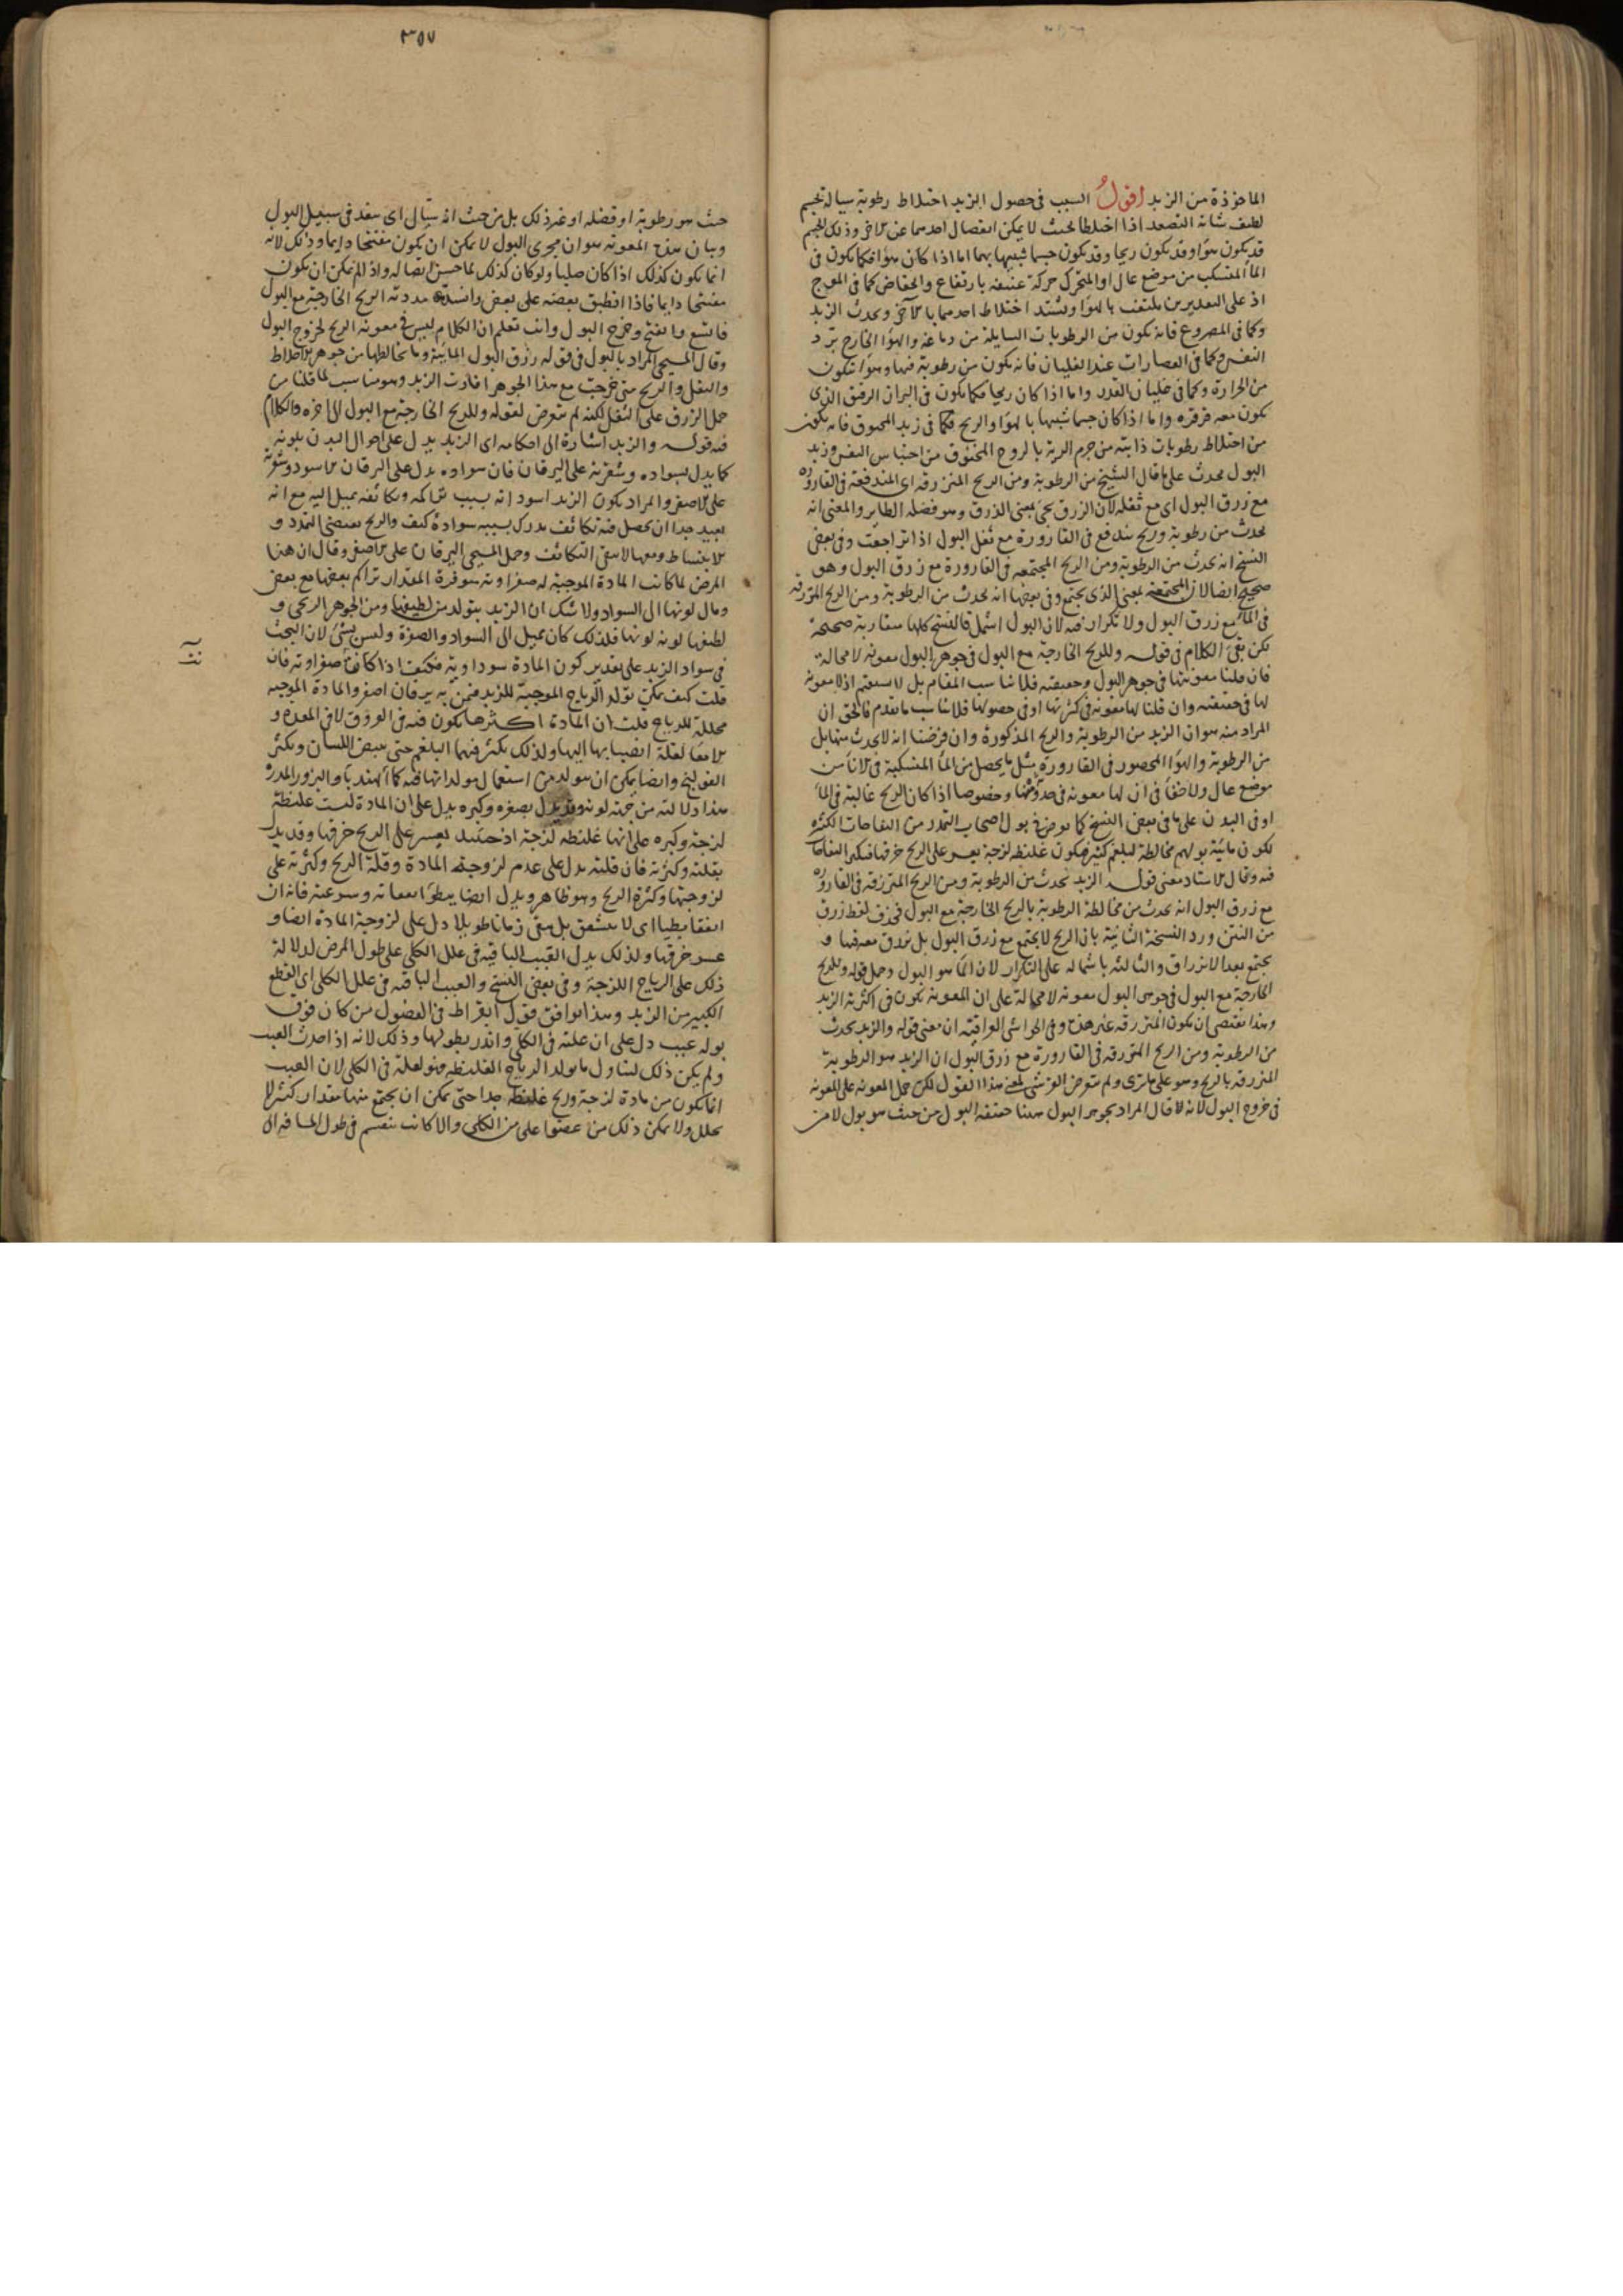 الماخوذة من الزبد اقول السبب فى حصول الزبد اختلاط رطوبة سيالة بجسم
لطيف شانه التصعد اذا اختلطا بحيث لا يمكن انفصال احدهما عن الاخر وذلك الجسم
قد يكون هواء وقد يكون ريحا وقد يكون جسما شبيها بهما اما اذا كان هواء فكما يكون فى
الماء المنسكب من موضع عال او المتحرك حركة عنيفة بارتفاع وانخفاض كما فى الموج
اذ على التقديرين يلتف بالهواء ويشتد اختلاط احدهما بالاخر ويحدث الزبد
وكما فى المصروع فانه يكون من الرطوبات السايلة من دماغه والهواء الخارج برد
النفس وكما فى العصارات عند الغليان فانه يكون من رطوبة فيها وهواء يتكون
من الحرارة وكما فى غليان القدر واما اذا كان ريحا فكما يكون فى البراز الرقيق الذى
يكون معه قرقره واما اذا كان جسما شبيها بالهواء والريح فكما فى زبد المخنوق فانه يكون
من اختلاط رطوبات ذايبة من جرم الرية بالروح المختنق من احتباس النفس وزبد
البول يحدث على ما قال الشيخ من الرطوبة ومن الريح المنزرقه اى المندفعة فى القاروره
مع زرق البول اى مع ثفله لان الزرق يجئ بمعنى الذرق وهو فضله الطاير والمعنى انه
يحدث من رطوبة وريح يندفع فى القارورة مع ثفل البول اذا تراجعت وفى بعض
النسخ انه يحدث من الرطوبة ومن الريح المجتمعه فى القارورة مع زرق البول وهو
صحيح ايضا لان المجتمعة بمعنى الذى يجتمع وفى بعضها انه يحدث من الرطوبة ومن الريح المنزرقه
فى الماء مع زرق البول ولا تكرار فيه لان البول اشمل فالنسخ كلها متقاربة صحيحة
لكن بقى الكلام فى قوله وللريح الخارجة مع البول فى جوهر البول معونة لا محالة
فان قلنا معونتها فى جوهر البول وحقيقته فلا يناسب المقام بل لا يستقيم اذ لا معونة
لها فى حقيقته وان قلنا لها معونة فى كثرتها او فى حصولها فلا يناسب ما تقدم فالحق ان
المراد منه هو ان الزبد من الرطوبة والريح المذكورة وان فرضنا انه لا يحدث منها بل
من الرطوبة والهواء المحصور فى القارورة مثل ما يحصل من الماء المنسكبة فى الاناء من
موضع عال ولا خفاء فى ان لها معونه فى حدوثها وخصوصا اذا كان الريح غالبة فى الماء
او فى البدن على ما فى بعض النسخ كما يعرض فى بول اصحاب التمدد من النفاخات الكثيره
لكون مائية بولهم مخالطة لبلغم كثير فيكون غليظه لزجة يعسر على الريح خرقها فيكثر النفاخات
فيه وقال الاستاد معنى قوله الزبد يحدث من الرطوبة ومن الريح المنزرقه فى القاروره
مع زرق البول انه يحدث من مخالطة الرطوبة بالريح الخارجة مع البول فحذف لفظ زرق
من المتن ورد النسخة الثانية بان الريح لا يجتمع مع زرق البول بل يزرق معه فيها و
يجتمع بعد الانزراق والثالثه باشماله على التكرار لان الماء هو البول وحمل قوله وللريح
الخارجة مع البول فى جوهر البول معونه لا محالة على ان المعونة يكون فى اكثرية الزبد
وهذا يقتضى ان يكون المنزرقه غير هذه وفى الحواشى العراقية ان معنى قوله والزبد يحدث
من الرطوبة ومن الريح المنزرقه فى القارورة مع زرق البول ان الزبد هو الرطوبة
المنزرقه بالريح وهو على ما ترى ولم يتعرض القرشى لمعنى هذا القول لكن حمل المعونه على المعونه
فى خروج البول لانه لا قال المراد بجوهر البول هنا حقيقة البول من حيث هو بول لا من
٣٥٧
حيث هو رطوبة او فضله او غير ذلك بل من حيث انه سيال اى ينفذ فى سبيل البول
وبيان هذه المعونه هو ان مجرى البول لا يمكن ان يكون منفتحا دايما وذلك لانه
انما يكون كذلك اذا كان صلبا ولو كان كذلك لما حسن اتصاله واذ الم يمكن ان يكون
منفتحا دايما فاذا انطبق بعضه على بعض وانسد مددته الريح الخارجة مع البول
فاتسع وانفتح وخرج البول وانت تعلم ان الكلام ليس فى معونه الريح لخروج البول
وقال المسيحى المراد بالبول فى قوله وزرق البول المائية وما يخالطها من جوهر الاخلاط
والثفل والريح متى خرجت مع هذا الجوهر افادت الزبد وهو مناسب لما قلنا من
حمل الزرق على الثفل لكنه لم يتعرض لقوله وللريح الخارجة مع البول الى اخره والكلام
فيه قوله والزبد اشارة الى احكامه اى الزبد يدل على احوال البدن بلونه
كما يدل بسواده وشقرته على اليرقان فان سواده يدل على اليرقان الاسود وشقرته
على الاصفر والمراد بكون الزبد اسود انه بسبب تراكمه وتكاثفه يميل اليه مع انه
بعيد جدا ان يحصل فيه تكاثف يدرك بسببه سوادة كيف والريح يقتضى التمدد و
الانبساط ومعهما لا يبقى التكاثف وحمل المسيحى اليرقان على الاصفر وقال ان هذا
المرض لما كانت المادة الموجبة له صفراوية متوفرة المقدار تراكم بعضها مع بعض
ومال لونها الى السواد ولا شك ان الزبد يتولد من لطيفها ومن الجوهر الريحى و
لطيفها لونه لونها فلذلك كان يميل الى السواد والصفرة وليس بشئ لان البحث
فى سواد الزبد على تقدير كون المادة سوداوية فكيف اذا كانت صفراويه فان
قلت كيف يمكن تولد الرياح الموجبة للزبد فيمن به يرقان اصفر والمادة الموجبه
محللة للرياح قلت ان المادة اكثرها يكون فيه فى العروق لا فى المعده و
الامعا لقلة انصبابها اليها ولذلك يكثر فيهما البلغم حتى يبيض اللسان ويكثر
القولنج وايضا يمكن ان يتولد من استعمال مولداتها فيه كماء الهندباء والبزور المدره
هذا دلالته من جهة لونه وقد يدل بصغره وكبره يدل على ان المادة ليست غليظة
لزجة وكبره على انها غليظه لزجة اذ حينئذ يعسر على الريح خرقها وقد يدل
بقلته وكثرته فان قلته يدل على عدم لزوجة المادة وقلة الريح وكثرته على
لزوجتها وكثرة الريح وهو ظاهر ويدل ايضا ببطؤ انفقائه وسرعته فانه ان
انفقا بطيا اى لا ينشق بل يبقى زمانا طويلا دل على لزوجة المادة ايضا و
عسر خرقها ولذلك يدل القبب الباقيه فى علل الكلى على طول المرض لدلالة
ذلك على الرياح اللزجة وفى بعض النسخ والعبب الباقيه فى علل الكلى اى القطع
الكبير من الزبد وهذا يوافق قول ابقراط فى الفصول من كان فوق
بوله عبب دل على ان علته فى الكلى وانذر بطولها وذلك لانه اذا حدث العبب
ولم يكن ذلك لتناول ما يولد الرياح الغليظه فهو لعلة فى الكلى لان العبب
انما يكون من مادة لزجة وريح غليظه جدا حتى يمكن ان يجتمع منها مقدار كثير لا
يحلل ولا يمكن ذلك من عضو اعلى من الكلى والا كانت تنقسم فى طول المسافه الى